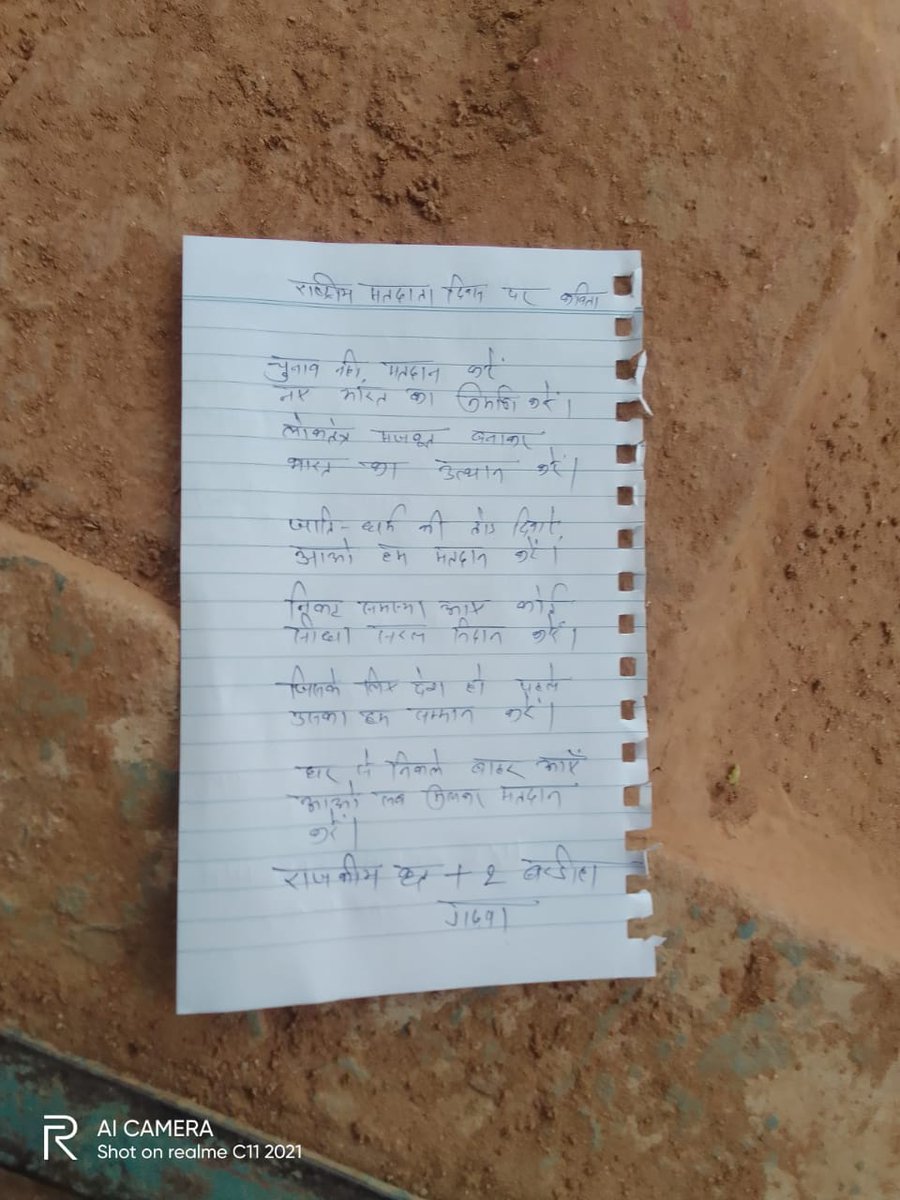 राष्ट्रीय मतदाता दिवस पर कविता
चुनाव नहीं, मतदान करें
नए भारत का निर्माण करें।
लोकतंत्र मजबूत बनाकर
भारत का उत्थान करें।
जाति-धर्म की तोड़
आओ हम मतदान करें।
समस्या आए कोई
सीधा सरल निदान करें।
जिसके लिए देश हो पहले
उसका हम सम्मान करें।
घर से निकले बाहर आएँ
आओ सब मिलकर मतदान
करें।
राजकीय + 2
गढ़वा
AI CAMERA
Shot on realme C11 2021